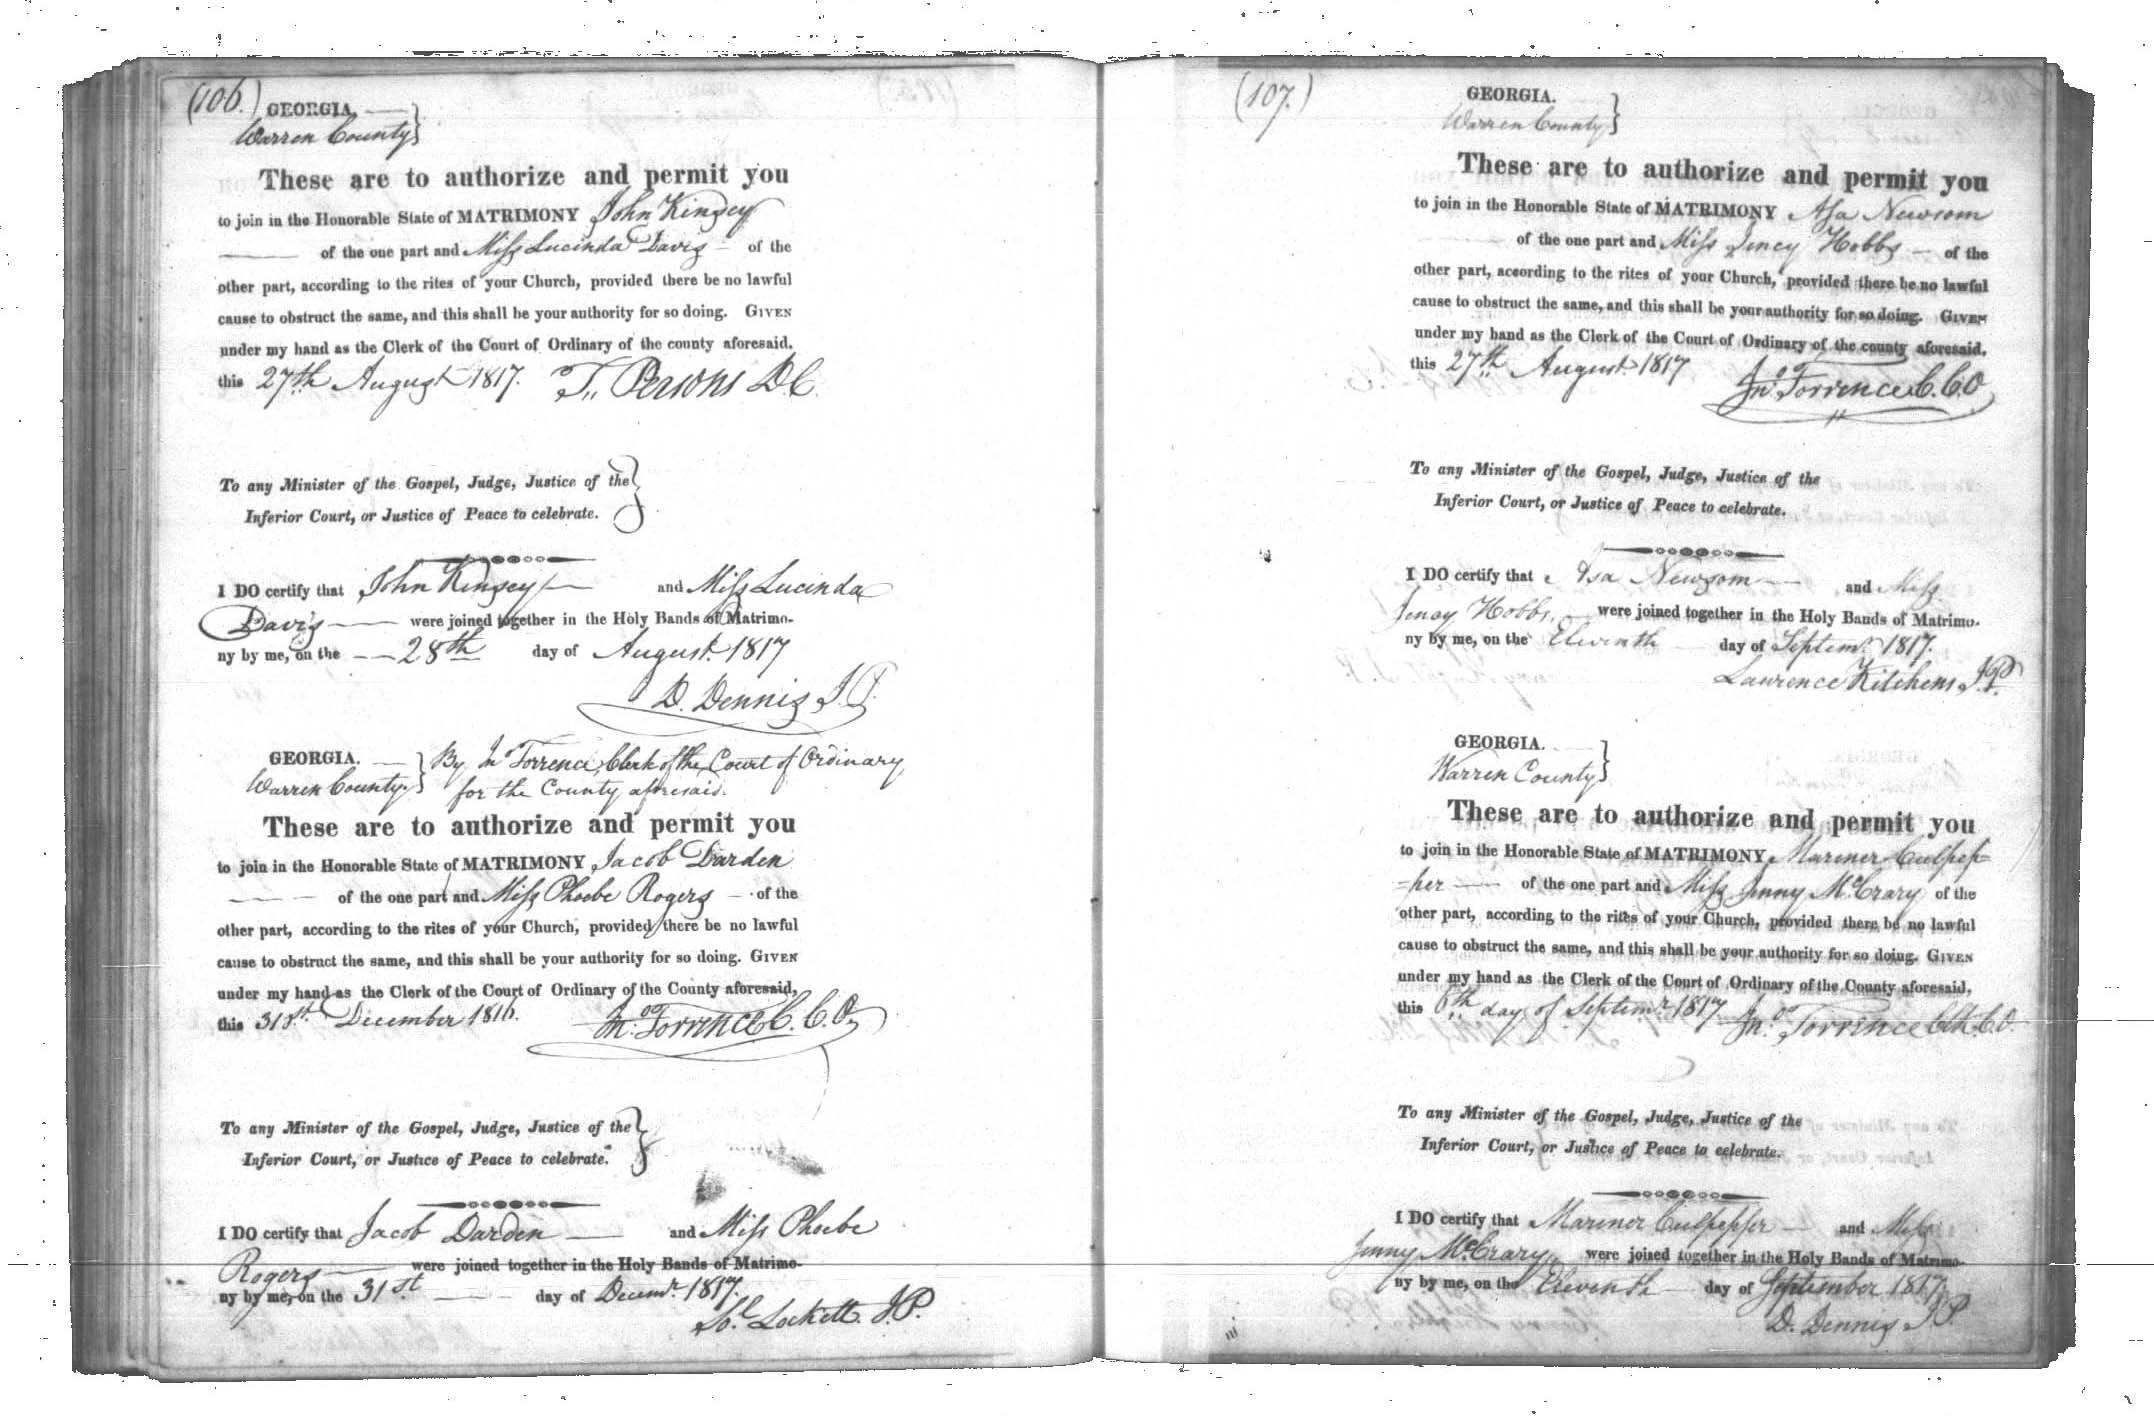 (106.)
GEORGIA. }
Warren County
These are to authorize and permit you
to join in the Honorable State of MATRIMONY John Kinsey
of the one part and Miss Lucinda Davis of the
other part, according to the rites of your Church, provided there be no lawful
cause to obstruct the same, and this shall be your authority for so doing. GIVEN
under my hand as the Clerk of the Court of Ordinary of the county aforesaid,
this 27th August 1817. T. Persons D.C.
To any Minister of the Gospel, Judge, Justice of the }
Inferior Court, or Justice of Peace to celebrate.
I DO certify that John Kinsey and Miss Lucinda
Davis were joined together in the Holy Bands of Matrimo-
ny by me, on the 28th day of August 1817
D. Dennis J.P.
GEORGIA. } By Jno. Torrence, Clerk of the Court of Ordinary
Warren County. for the County aforesaid.
These are to authorize and permit you
to join in the Honorable State of MATRIMONY Jacob Darden
of the one part and Miss Phoebe Rogers of the
other part, according to the rites of your Church, provided there be no lawful
cause to obstruct the same, and this shall be your authority for so doing. GIVEN
under my hand as the Clerk of the Court of Ordinary of the County aforesaid,
this 31st December 1816. Jno. Torrence C.C.O.
To any Minister of the Gospel, Judge, Justice of the }
Inferior Court, or Justice of Peace to celebrate.
I DO certify that Jacob Darden and Miss Phoebe
Rogers were joined together in the Holy Bands of Matrimo-
ny by me, on the 31st day of Decemr. 1817.
Sol. Lockett J.P.
(107.)
GEORGIA. }
Warren County
These are to authorize and permit you
to join in the Honorable State of MATRIMONY Asa Newsom
of the one part and Miss Jincy Hobbs of the
other part, according to the rites of your Church, provided there be no lawful
cause to obstruct the same, and this shall be your authority for so doing. GIVEN
under my hand as the Clerk of the Court of Ordinary of the county aforesaid,
this 27th August 1817
Jno. Torrence C.C.O
To any Minister of the Gospel, Judge, Justice of the
Inferior Court, or Justice of Peace to celebrate.
I DO certify that Asa Newsom and Miss
Jincy Hobbs were joined together in the Holy Bands of Matrimo-
ny by me, on the Eleventh day of Septemr. 1817.
Lawrence Kitchens J.P.
GEORGIA. }
Warren County
These are to authorize and permit you
to join in the Honorable State of MATRIMONY Mariner Culpep=
=per of the one part and Miss Jenny McCrary of the
other part, according to the rites of your Church, provided there be no lawful
cause to obstruct the same, and this shall be your authority for so doing. GIVEN
under my hand as the Clerk of the Court of Ordinary of the County aforesaid,
this 6th day of Septemr. 1817 Jno. Torrence Clk. C.O.
To any Minister of the Gospel, Judge, Justice of the
Inferior Court, or Justice of Peace to celebrate.
I DO certify that Mariner Culpepper and Miss
Jenny McCrary were joined together in the Holy Bands of Matrimo-
ny by me, on the Eleventh day of September 1817.
D. Dennis J.P.